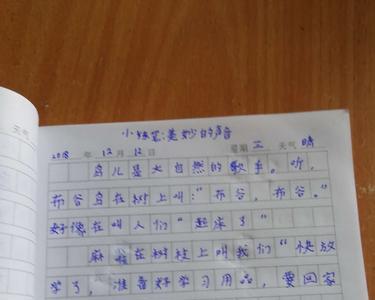 天气
小练笔:美妙的声音
2018年12月12日 星期三 天气晴
鸟儿是大自然的歌手。听,
布谷鸟在树上叫:“布谷,布谷。”
好像在叫人们“起床了”
麻雀在树枝上叫我们“快放
学了,准备好学习用品,要回家